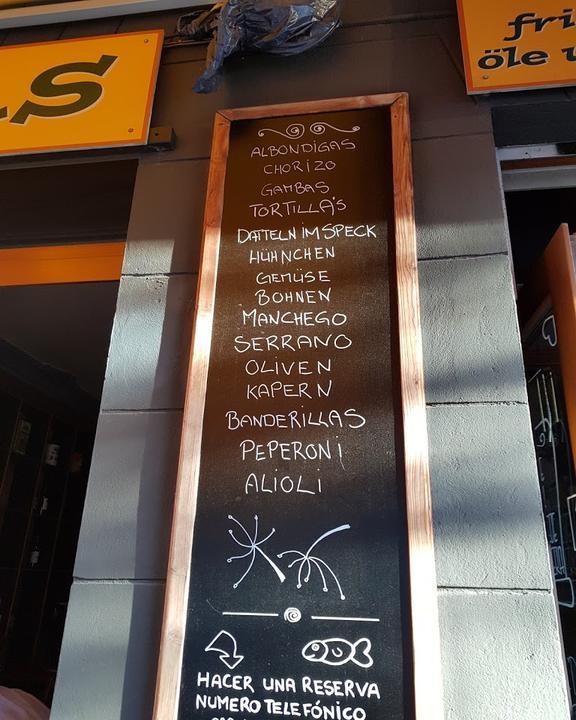 S
fri
öle
ALBONDIGAS
CHORIZO
GAMBAS
TORTILLA'S
DATTELN IM SPECK
HÜHNCHEN
GEMÜSE
BOHNEN
MANCHEGO
SERRANO
OLIVEN
KAPERN
BANDERILLAS
PEPERONI
ALIOLI
HACER UNA RESERVA
NUMERO TELEFÓNICO